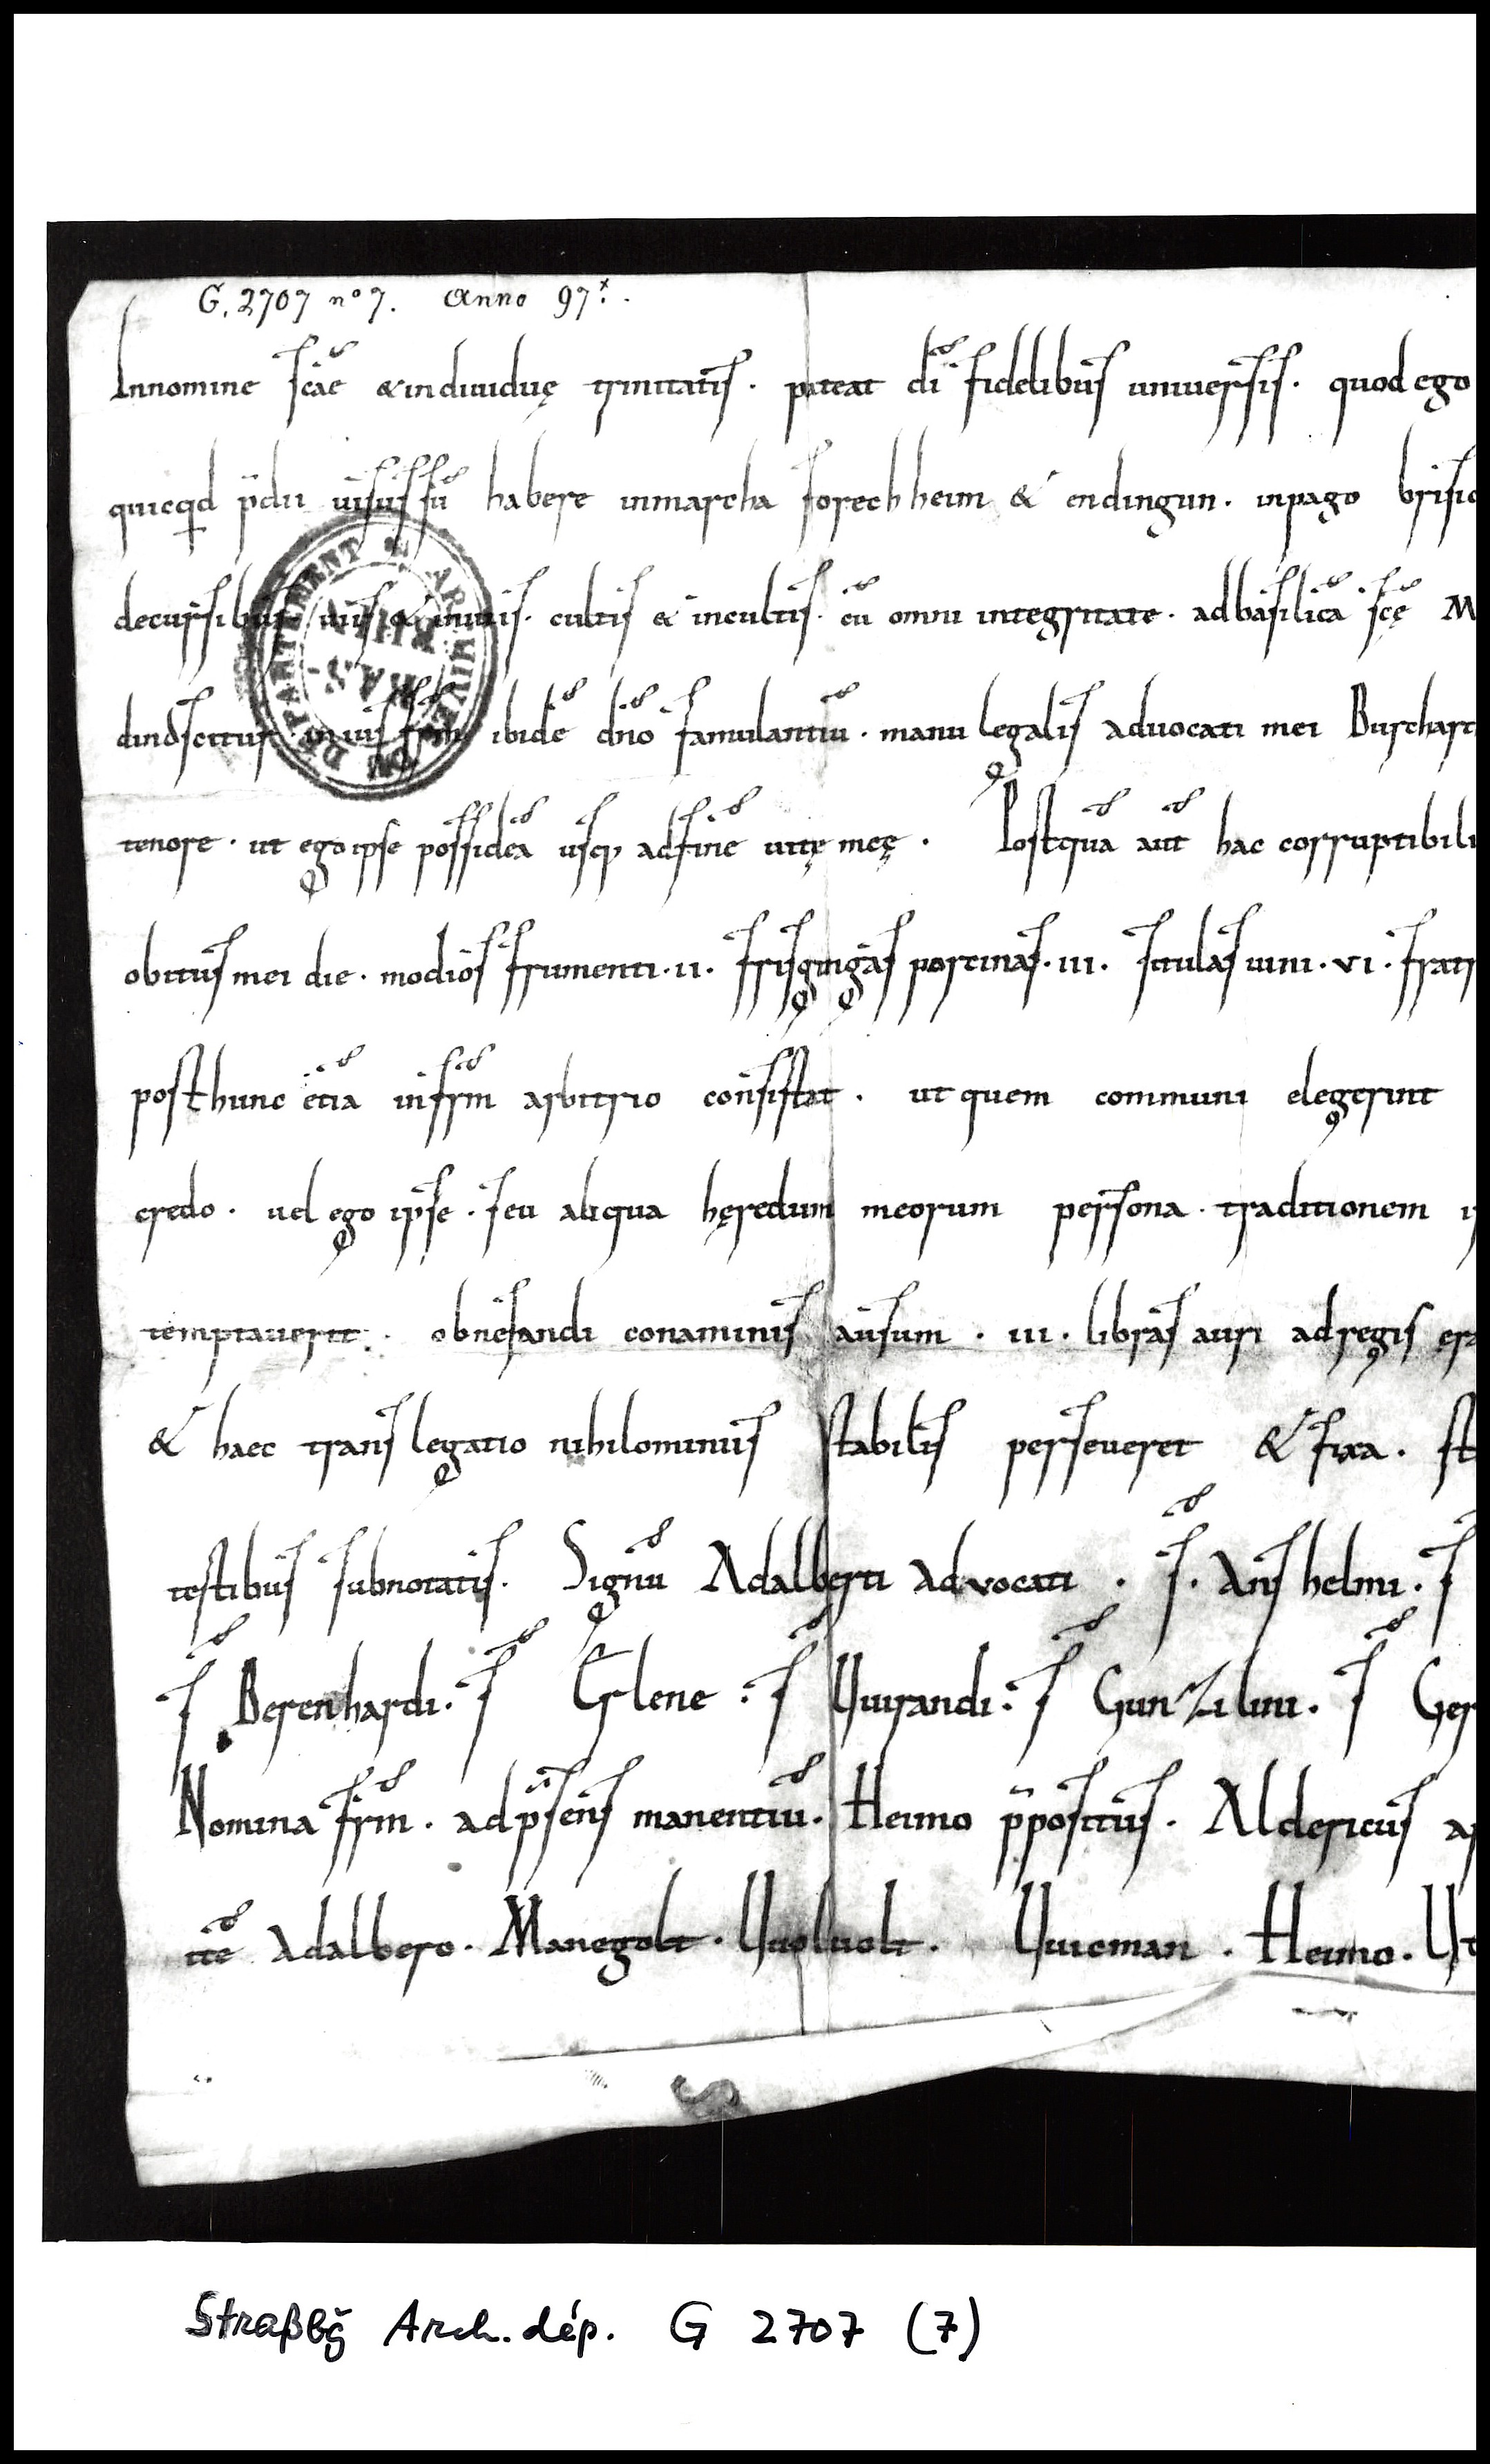 G. 2707 nº 7. Anno 97
Innomine scāe & indiuiduę trinitatis · pateat dī fidelibus uniuersis · quod ego
quicqid p̄dii uisus sū habere inmarcha forechheim & endingun · inpago brisic
decursibus uiis & inuiis · cultis & incultis · cū omni integritate · adbasilicā scę M
ibidē dn̄o famulantiū · manu legalis aduocati mei Burchart
tenore · ut ego ipse possideā usq; adfinē uitę meę · Postquā aūt hac corruptibili
obitus mei die · modios frumenti · ii · frisgingas porcinas · iii · situlas uini · vi · fratr
posthunc etiā infrm̄ arbitrio consistat · ut quem communi elegerint
credo · uel ego ipse · seu aliqua hęredum meorum persona · traditionem
temptauerit · obnefandi conaminis ausum · iii · libras auri adregis ęra
& haec translegatio nihilominus stabilis perseueret & fixa · st
testibus subnotatis · Signū Adalberti aduocati · S̄ · Anshelmi · S
S̄ Berenhardi · S̄ Erlene · S̄ Uuirandi · S̄ Gunzilini · S̄ Ger
Nomina frm̄ · adp̄sens manentiū · Heimo p̄positus · Aldericus ar
itē Adalbero · Manegolt · Uuoluolt · Uuicman · Heimo · Ut
ARCHIVES DU DÉPARTEMENT
BAS-
RHIN
Straßbg Arch. dép. G 2707 (7)